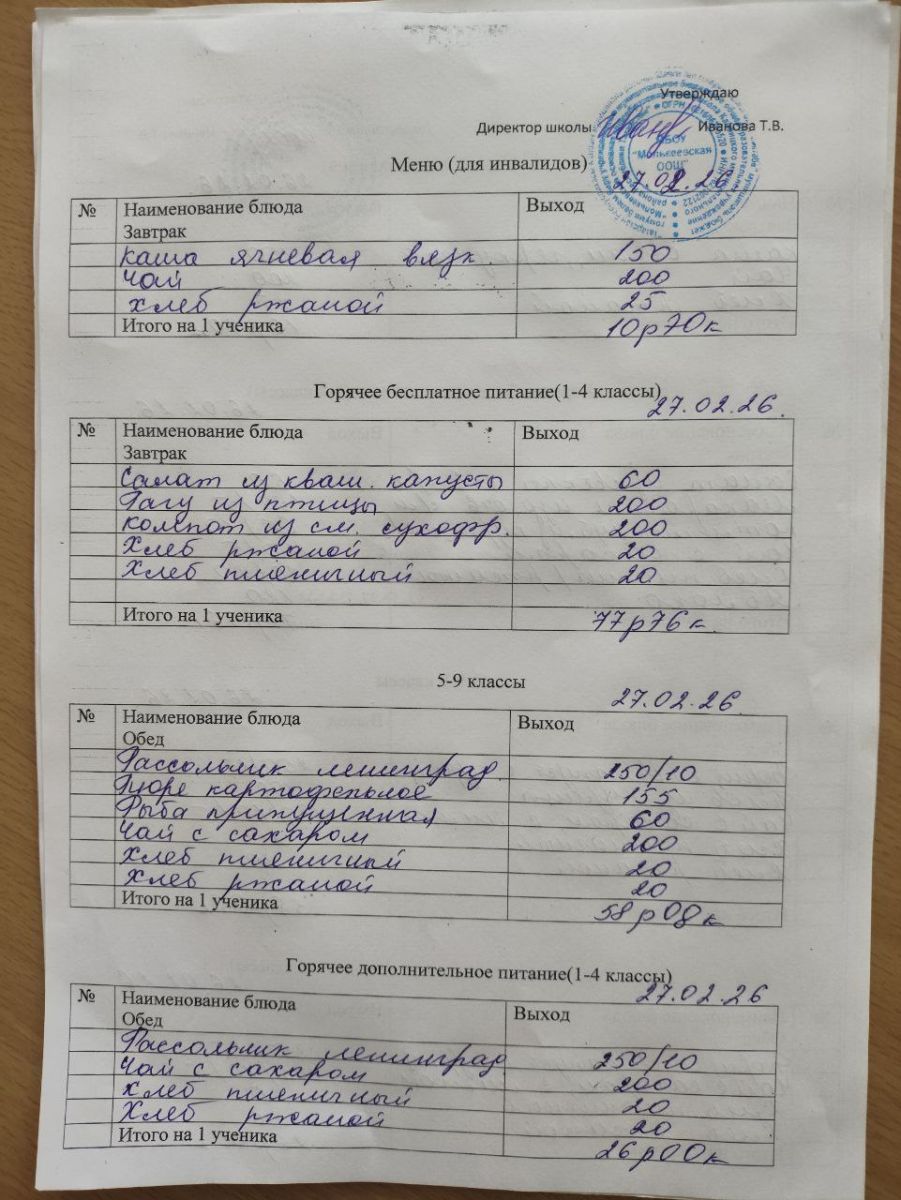 Утверждаю
Директор школы Иванова Т.В.
БОУ
"Молькеевская
ООШ"
Меню (для инвалидов)
27.02.26
№ Наименование блюда Выход
Завтрак
Каша ячневая вязк. 150
Чай 200
Хлеб ржаной 25
Итого на 1 ученика 10р70к
Горячее бесплатное питание(1-4 классы)
27.02.26.
№ Наименование блюда Выход
Завтрак
Салат из кваш. капусты 60
Рагу из птицы 200
Компот из см. сухофр. 200
Хлеб ржаной 20
Хлеб пшеничный 20
Итого на 1 ученика 77р76к.
5-9 классы
27.02.26
№ Наименование блюда Выход
Обед
Рассольник ленинград. 250/10
Пюре картофельное 155
Рыба припущенная 60
Чай с сахаром 200
Хлеб пшеничный 20
Хлеб ржаной 20
Итого на 1 ученика 58р08к
Горячее дополнительное питание(1-4 классы)
27.02.26
№ Наименование блюда Выход
Обед
Рассольник ленинград. 250/10
Чай с сахаром 200
Хлеб пшеничный 20
Хлеб ржаной 20
Итого на 1 ученика 26р00к